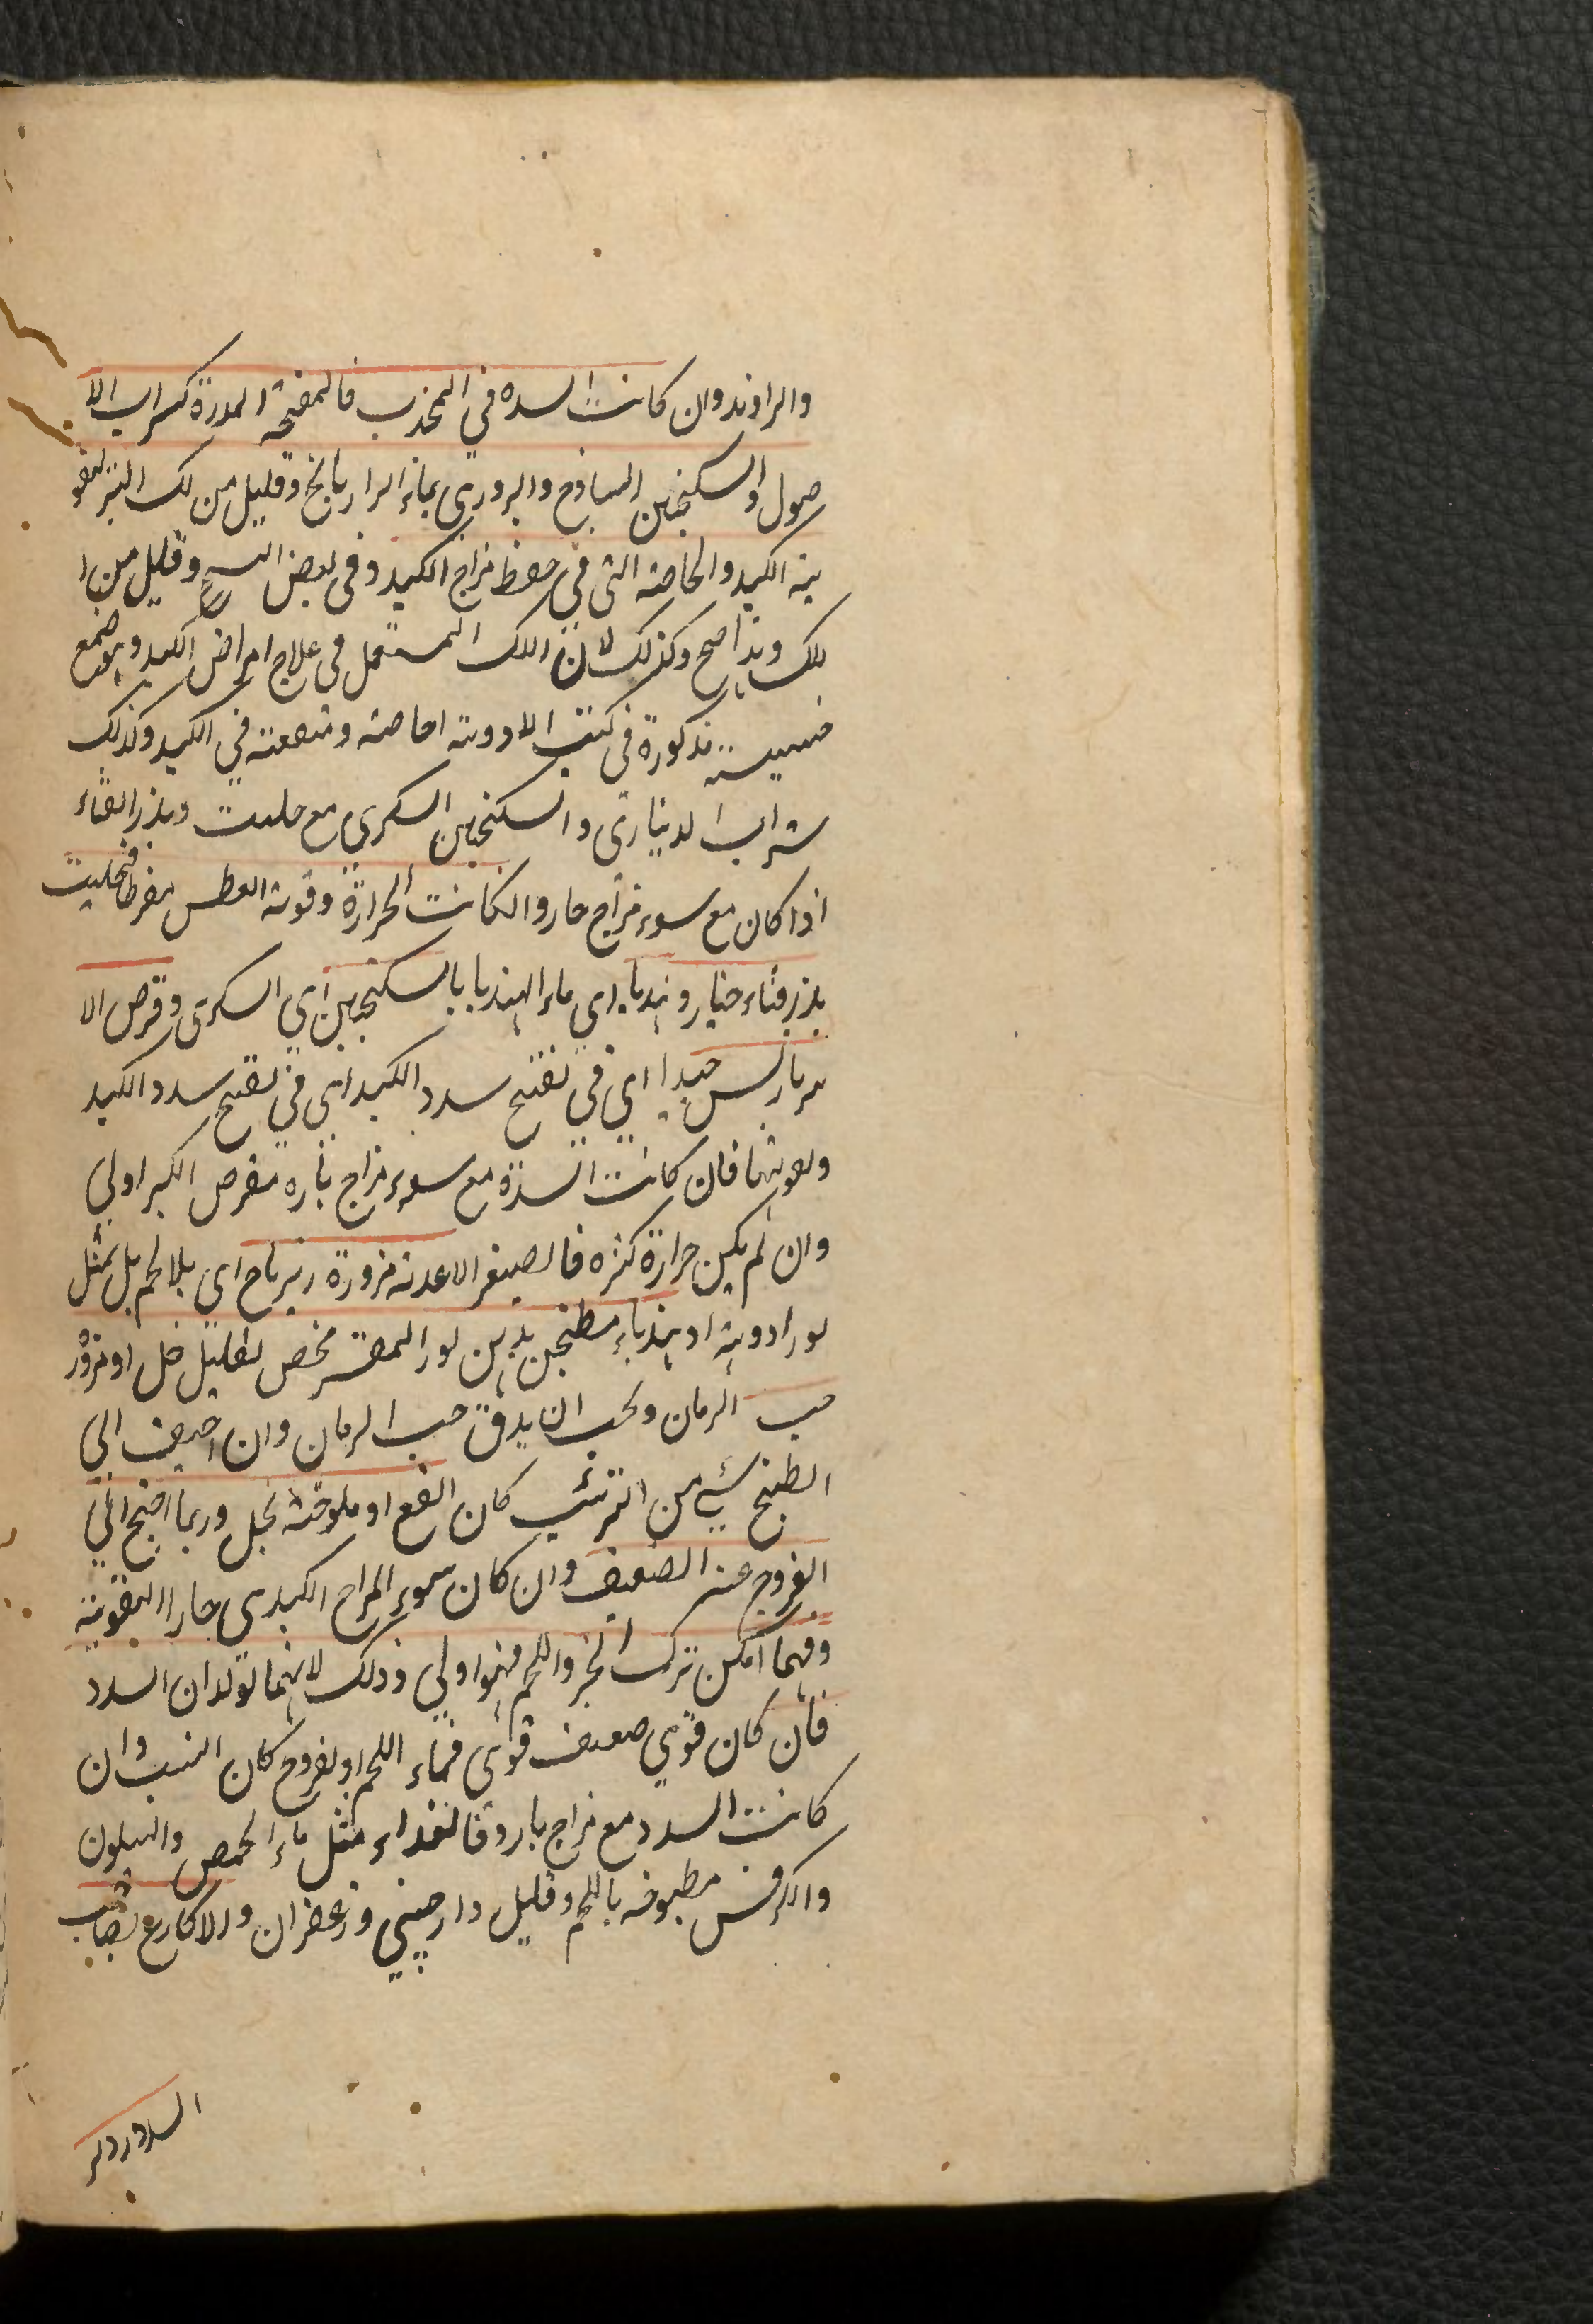 والراوند وان كانت السدة في المحدب فالمفتحة المدرة كشراب الا
صول والسكنجبين الساذج والبزوري بماء الرازيانج وقليل من لك التبر لتقو
ية الكبد والخاصة التي في حفظ مزاج الكبد وفي بعض النسخ وقليل من ا
للك وهذا اصح وكذلك لان اللك المستعمل في علاج امراض الكبد وهو صمغ
خسيسة مذكورة في كتب الادوية اخاصة ومنفعته في الكبد وكذلك
شراب الديناري والسكنجبين السكري مع حليب وبذر القثاء
اذا كان مع سوء مزاج حار والكانت الحرارة وقوية العطس مفرط فحليب
بذر قثاء خيار وهندبا اى ماء الهندبا بالسكنجبين اي السكرى وقرص الا
مبرباريس جيدا اي في تفتيح سدد الكبد اى في تفتيح سدد الكبد
وتقويتها فان كانت السدة مع سوء مزاج بارد فقرص الكبر اولى
وان لم يكن حرارة كثره فالصيغر الاغدية مزورة زيرباج اي بلا لحم بل بمثل
لوز ادوية او هندباء مطنجن بدهن لوز المقشر محمص بقليل خل او مزور
حب الرمان ويجب ان يدق حب الرمان وان اضيف الى
الطبخ شئ من الزبيب كان انفع او ملوخية بخل وربما احتيج الى
الفروج عند الضعيف وان كان سوء المزاج الكبدى حارا التقوية
ومهما امكن ترك الخبز واللحم فهو اولى وذلك لانهما تولدان السدد
فان كان قوي ضعيف قوى فماء اللحم او بفروج كان انسب وان
كانت السدد مع مزاج بارد فالغداء مثل ماء الحمص والهليون
والكرفس مطبوخه باللحم وقليل دارصيني وزعفران والاكارع تعقب
السدد